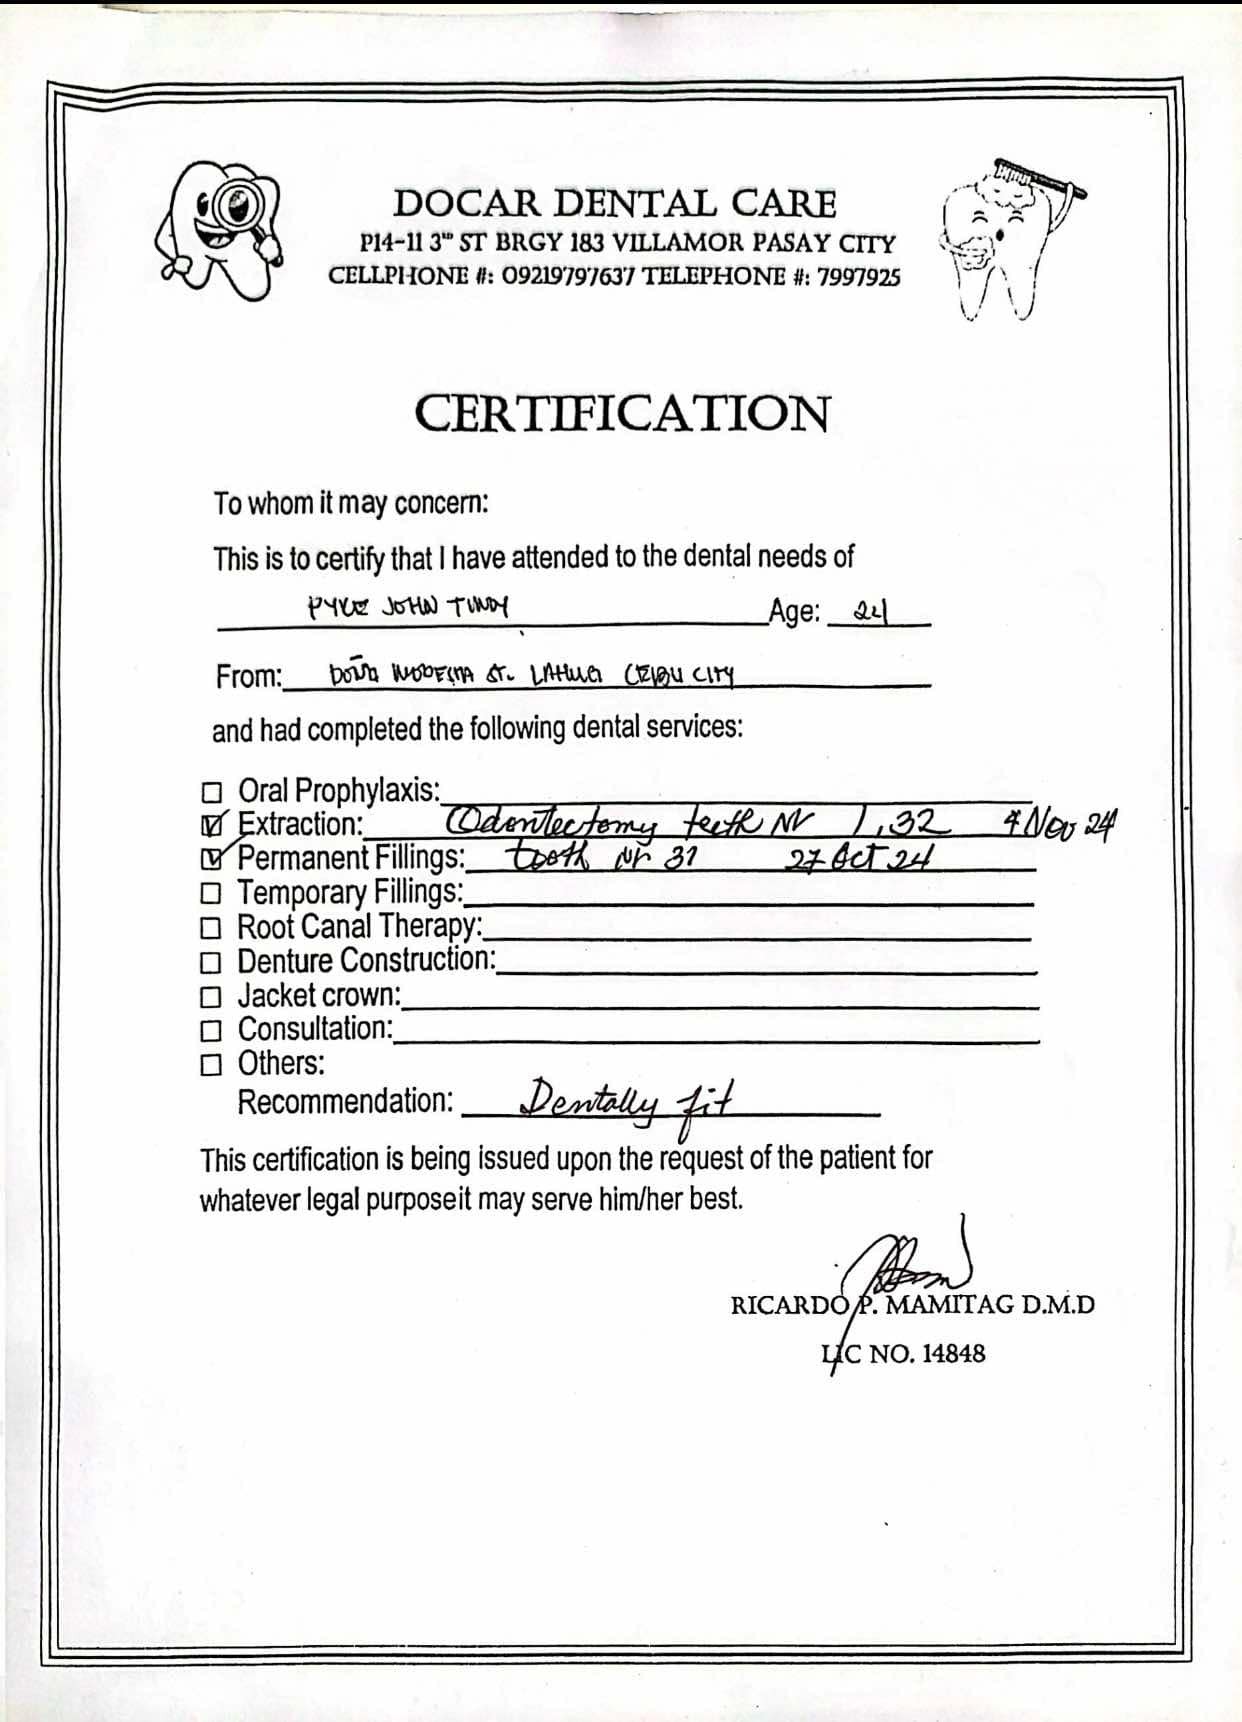 DOCAR DENTAL CARE
P14-11 3rd ST BRGY 183 VILLAMOR PASAY CITY
CELLPHONE #: 09219797637 TELEPHONE #: 7997925
CERTIFICATION
To whom it may concern:
This is to certify that I have attended to the dental needs of
JOHN Age: 24
From: ST. CITY
and had completed the following dental services:
☐ Oral Prophylaxis:
☑ Extraction: Odontectomy teeth Nr 1,32 4 Nov 24
☑ Permanent Fillings: tooth nr 31 27 Oct 24
☐ Temporary Fillings:
☐ Root Canal Therapy:
☐ Denture Construction:
☐ Jacket crown:
☐ Consultation:
☐ Others:
Recommendation: Dentally fit
This certification is being issued upon the request of the patient for
whatever legal purposeit may serve him/her best.
RICARDO P. MAMITAG D.M.D
LIC NO. 14848